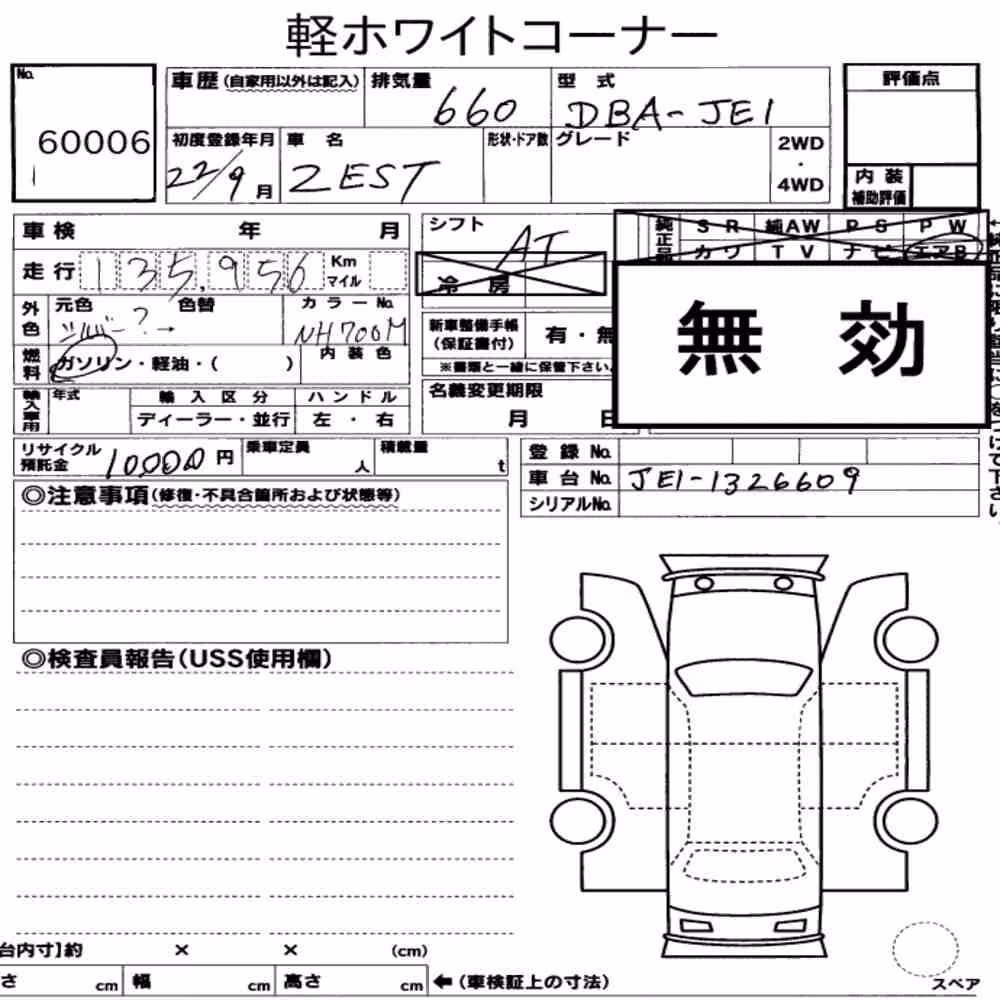 軽ホワイトコーナー
No.
60006
車歴 (自家用以外は記入)
排気量
660
型 式
DBA-JE1
評価点
初度登録年月
22/9 月
車 名
ZEST
形状・ドア数
グレード
2WD
・
4WD
内 装
補助評価
車 検 年 月
シフト
AT
純正品
S R 純AW P S P W
カワ T V ナビ エアB
走 行 135,956 Km
マイル
冷 房
無 効
外色
元色
シルバー?→
色替
カラーNo.
NH700M
新車整備手帳
(保証書付)
有・無
※書類と一緒に保管下さい
燃料
ガソリン・軽油・( )
内 装 色
名義変更期限
月 日
輸入車用
年式
輸 入 区 分
ディーラー・並行
ハ ン ド ル
左 ・右
リサイクル
預託金
10000 円
乗車定員
人
積載量
t
登 録 No.
車 台 No. JE1-1326609
シリアルNo.
◎注意事項(修復・不具合箇所および状態等)
◎検査員報告(USS使用欄)
台内寸】約 × × (cm)
さ cm 幅 cm 高さ cm ←(車検証上の寸法)
スペア